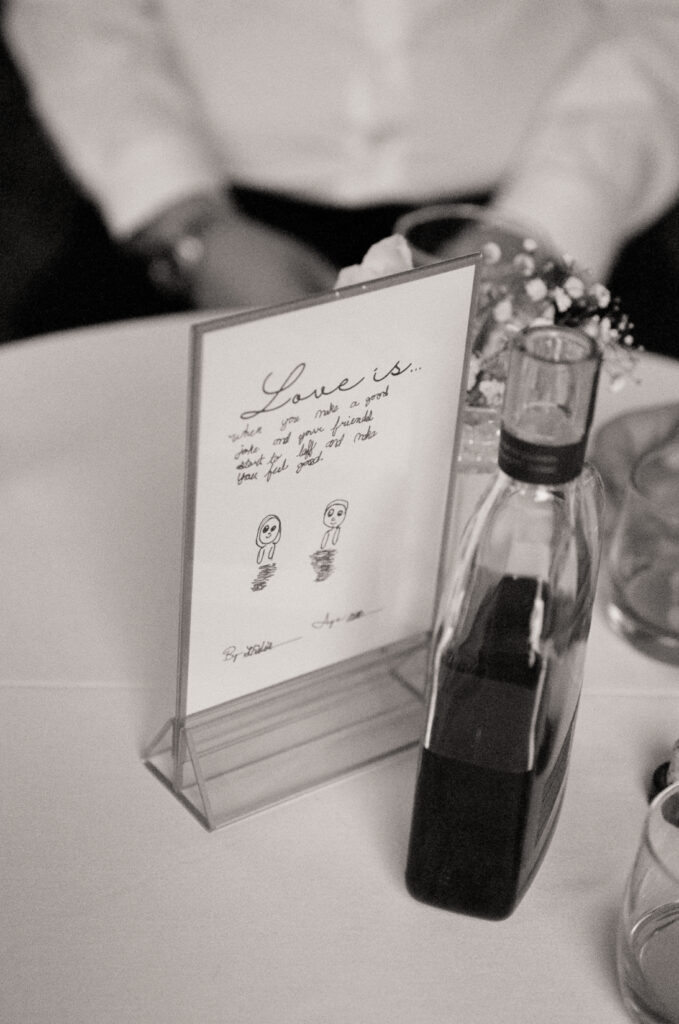 Love is...
When you make a good
joke and your friends
start to laff and make
you feel good.
Age
By